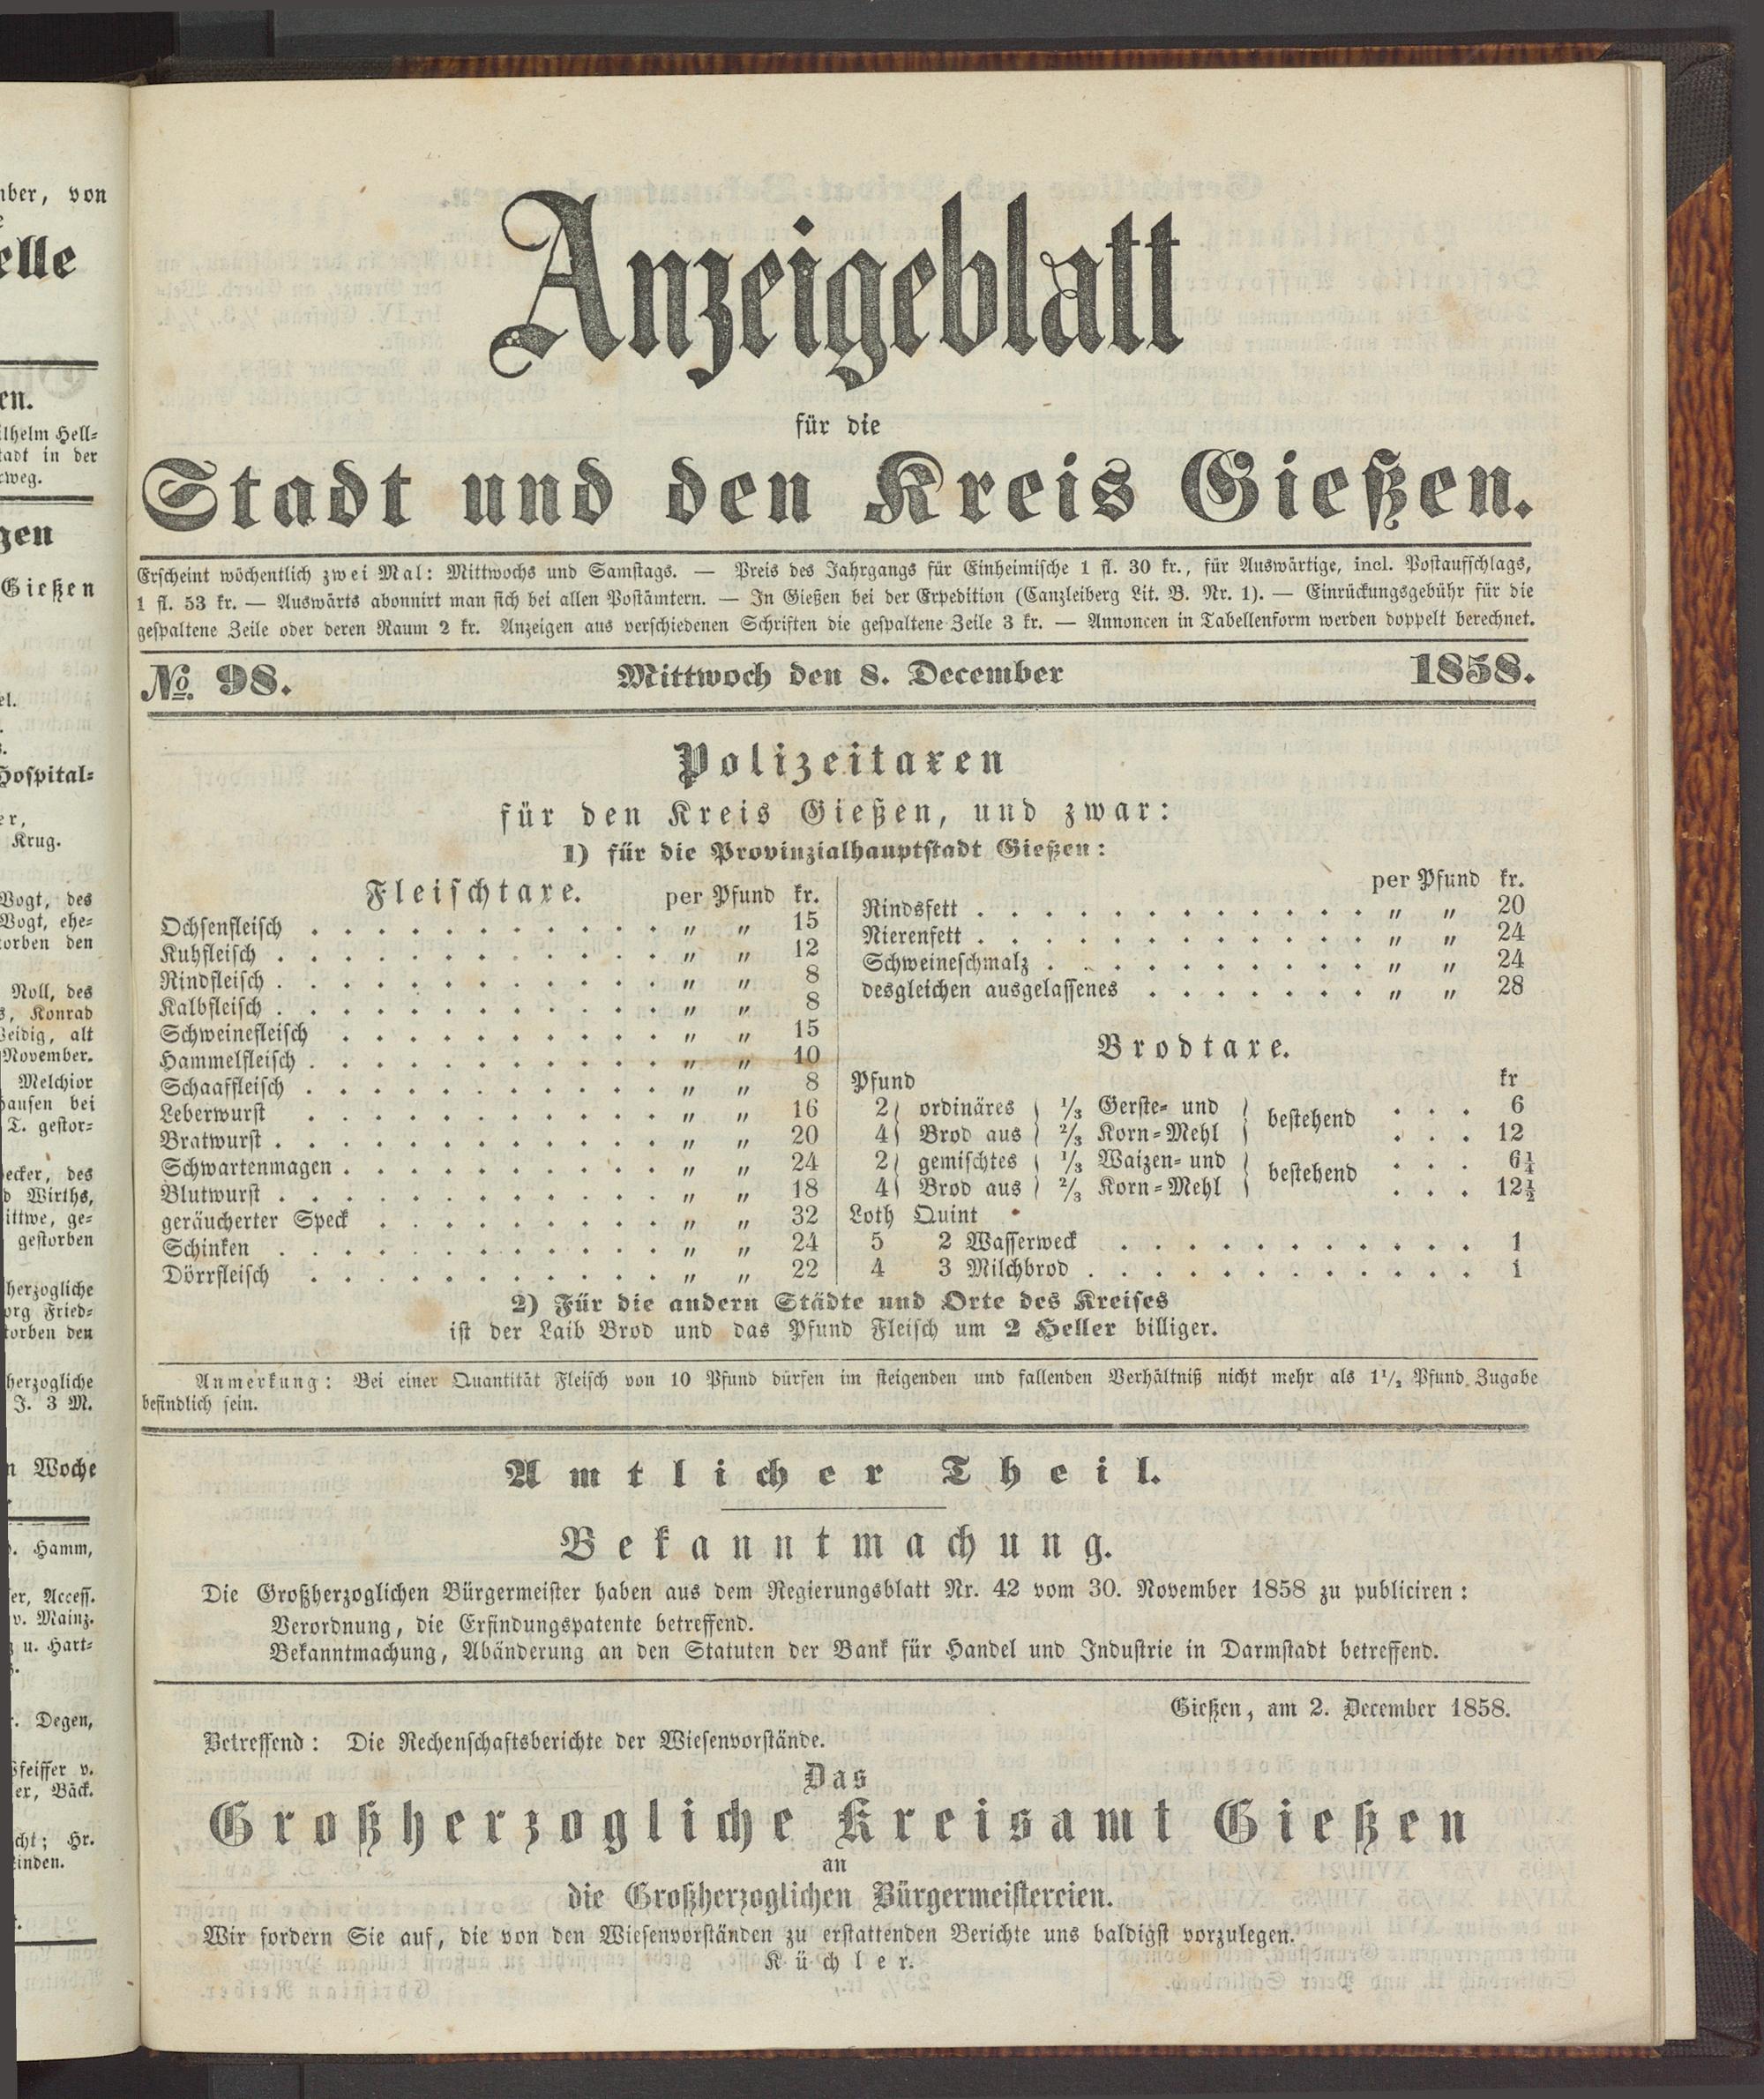 mber, von
elle
en.
ilhelm Hell-
tadt in der
rweg.
gen
Gießen
el.
Hospital-
er,
Krug.
Vogt, des
Vogt, ehe-
torben den
Noll, des
s, Konrad
Weidig, alt
November.
Melchior
hausen bei
T. gestor-
ecker, des
d Wirths,
ittwe, ge-
gestorben
herzogliche
org Fried-
torben den
herzogliche
J. 3 M.
n Woche
. Hamm,
er, Access.
v. Mainz.
u. Hart-
r. Degen,
Pfeiffer v.
er, Bäck.
cht; Hr.
inden.
Anzeigeblatt
für die
Stadt und den Kreis Gießen.
Erscheint wöchentlich zwei Mal: Mittwochs und Samstags. — Preis des Jahrgangs für Einheimische 1 fl. 30 kr., für Auswärtige, incl. Postaufschlags,
1 fl. 53 kr. — Auswärts abonnirt man sich bei allen Postämtern. — In Gießen bei der Expedition (Canzleiberg Lit. B. Nr. 1). — Einrückungsgebühr für die
gespaltene Zeile oder deren Raum 2 kr. Anzeigen aus verschiedenen Schriften die gespaltene Zeile 3 kr. — Annoncen in Tabellenform werden doppelt berechnet.
No. 98. Mittwoch den 8. December 1858.
Polizeitaxen
für den Kreis Gießen, und zwar:
1) für die Provinzialhauptstadt Gießen:
Fleischtaxe. per Pfund kr.
Ochsenfleisch . . . . . . . . . . . „ „ 15
Kuhfleisch . . . . . . . . . . . . „ „ 12
Rindfleisch . . . . . . . . . . . . „ „ 8
Kalbfleisch . . . . . . . . . . . . „ „ 8
Schweinefleisch . . . . . . . . . . „ „ 15
Hammelfleisch . . . . . . . . . . . „ „ 10
Schaaffleisch . . . . . . . . . . . „ „ 8
Leberwurst . . . . . . . . . . . „ „ 16
Bratwurst . . . . . . . . . . . . „ „ 20
Schwartenmagen . . . . . . . . . . „ „ 24
Blutwurst . . . . . . . . . . . . „ „ 18
geräucherter Speck . . . . . . . . . „ „ 32
Schinken . . . . . . . . . . . . „ „ 24
Dörrfleisch . . . . . . . . . . . „ „ 22
per Pfund kr.
Rindsfett . . . . . . . . . . . . „ „ 20
Nierenfett . . . . . . . . . . . . „ „ 24
Schweineschmalz . . . . . . . . . . „ „ 24
desgleichen ausgelassenes . . . . . . . „ „ 28
Brodtaxe.
Pfund kr
2 } ordinäres { 1/3 Gerste- und } bestehend . . . 6
4 } Brod aus { 2/3 Korn-Mehl } . . . 12
2 } gemischtes { 1/3 Waizen- und } bestehend . . . 6¼
4 } Brod aus { 2/3 Korn-Mehl } . . . 12½
Loth Quint
5 2 Wasserweck . . . . . . . . . . . 1
4 3 Milchbrod . . . . . . . . . . . . 1
2) Für die andern Städte und Orte des Kreises
ist der Laib Brod und das Pfund Fleisch um 2 Heller billiger.
Anmerkung: Bei einer Quantität Fleisch von 10 Pfund dürfen im steigenden und fallenden Verhältniß nicht mehr als 1½ Pfund Zugabe
befindlich sein.
Amtlicher Theil.
Bekanntmachung.
Die Großherzoglichen Bürgermeister haben aus dem Regierungsblatt Nr. 42 vom 30. November 1858 zu publiciren:
Verordnung, die Erfindungspatente betreffend.
Bekanntmachung, Abänderung an den Statuten der Bank für Handel und Industrie in Darmstadt betreffend.
Gießen, am 2. December 1858.
Betreffend: Die Rechenschaftsberichte der Wiesenvorstände.
Das
Großherzogliche Kreisamt Gießen
an
die Großherzoglichen Bürgermeistereien.
Wir fordern Sie auf, die von den Wiesenvorständen zu erstattenden Berichte uns baldigst vorzulegen.
Küchler.